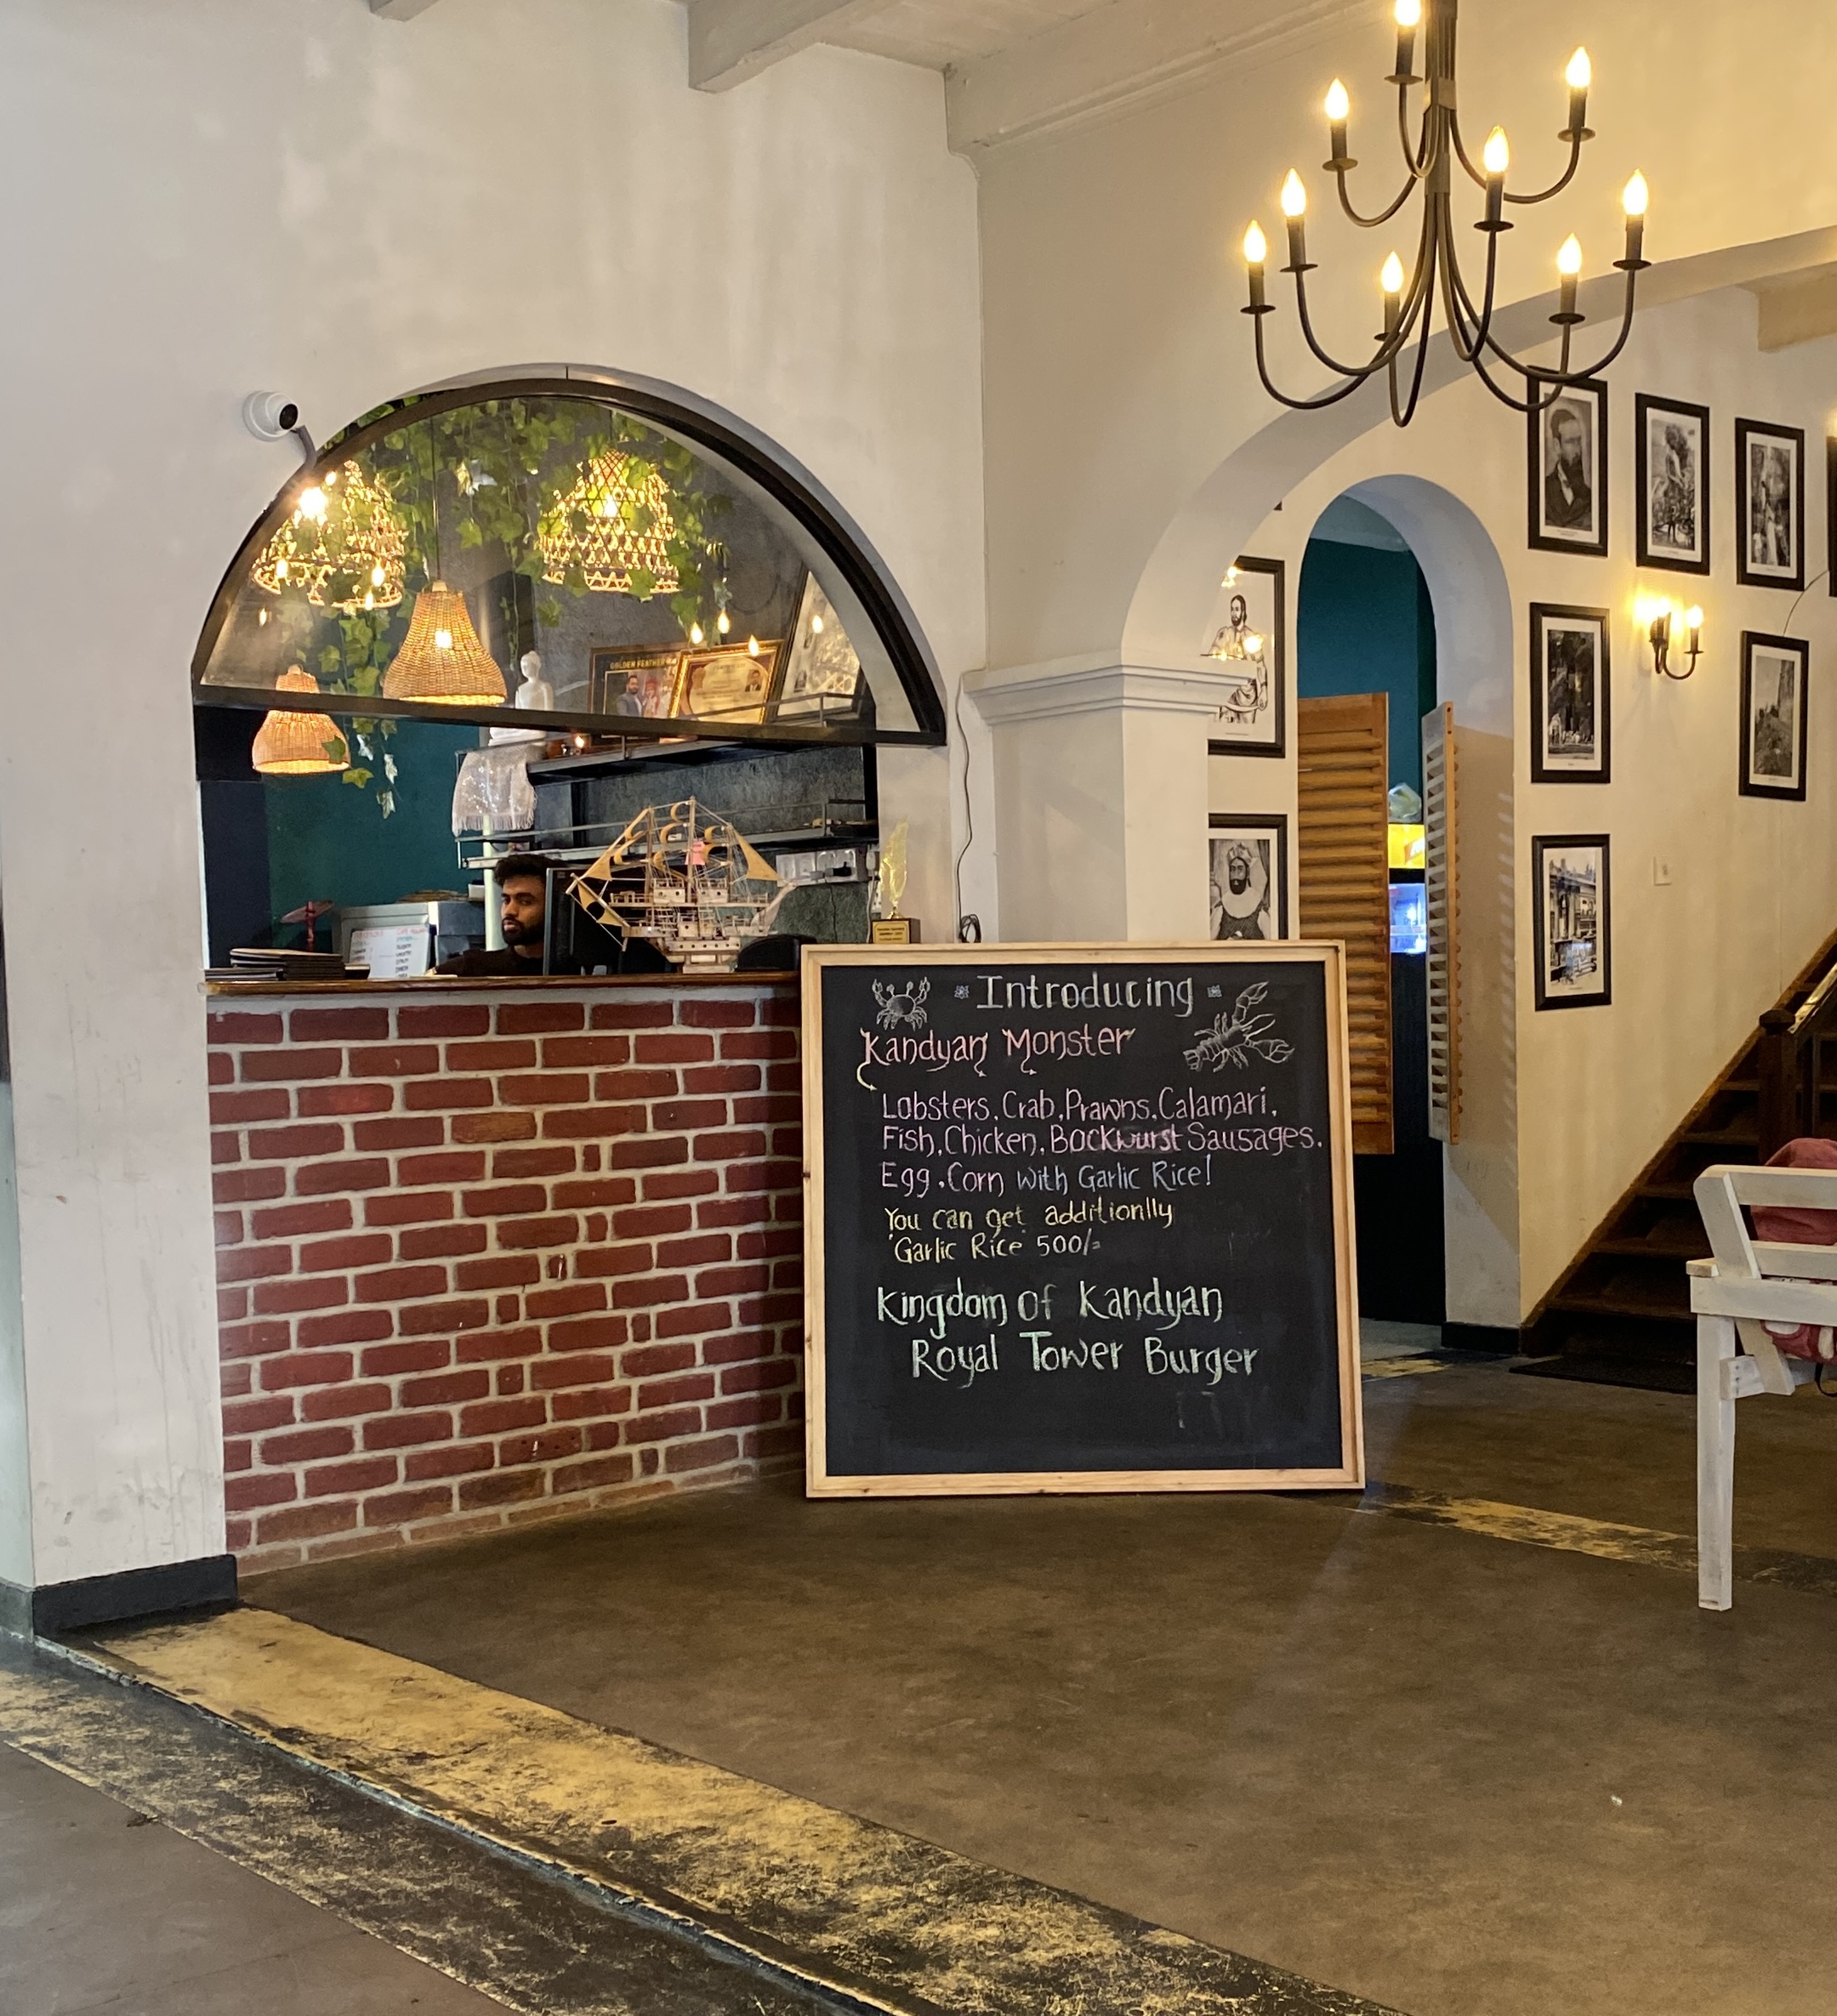 GOLDEN FEATHER
Introducing
Kandyan Monster
Lobsters, Crab, Prawns, Calamari,
Fish, Chicken, Bockwurst Sausages,
Egg, Corn with Garlic Rice!
You can get additionlly
Garlic Rice 500/=
Kingdom of Kandyan
Royal Tower Burger